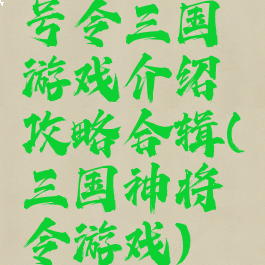 号令三国
游戏介绍
攻略合辑(
三国神将
令游戏)